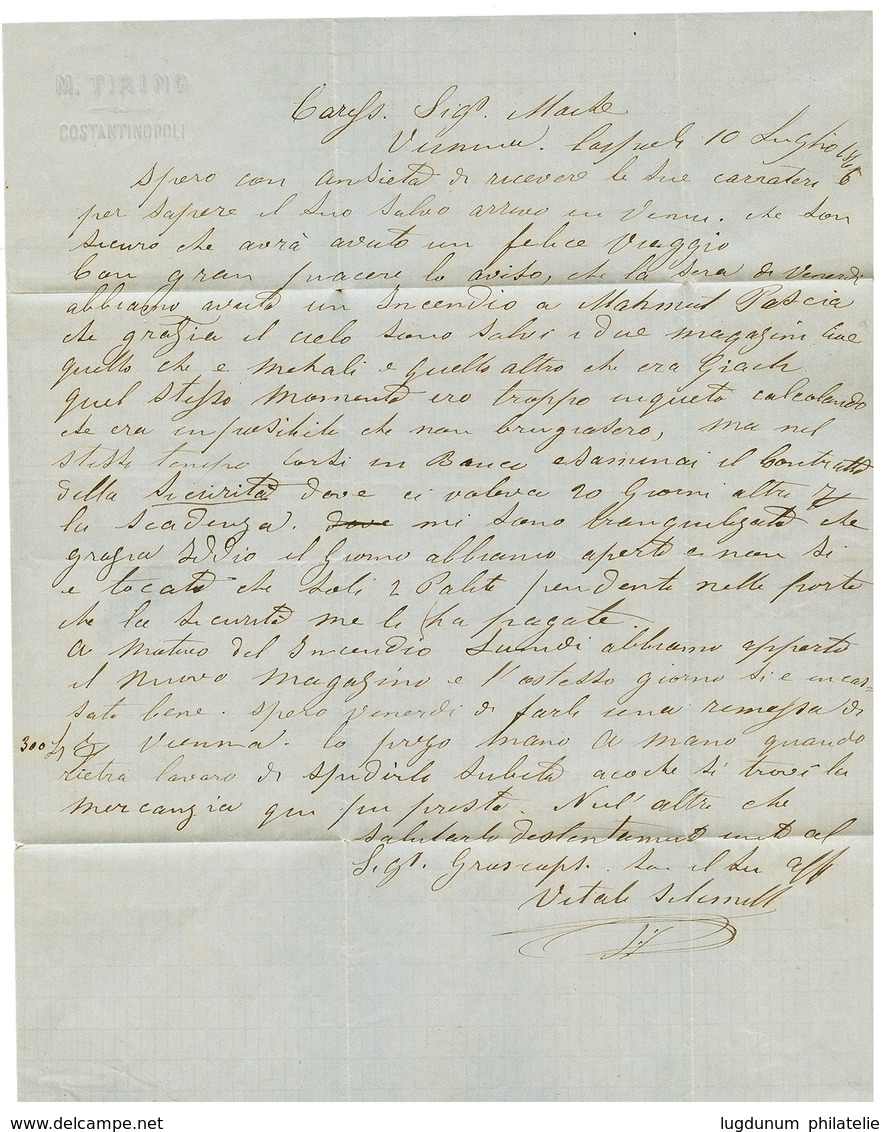 M. TIRING
COSTANTINOPOLI
Sigr.
Vienna. 10 Luglio
Spero con ansietà di ricevere le sue
per sapere il suo salvo arrivo in Vienn. che son
sicuro che avrà avuto un felice Viaggio
Con gran piacere lo aviso, che la sera di Venerdi
abbiamo avuto un Incendio a Mahmud Pascia
che grazia il cielo sono salvi i due magazini
quello che e e quello altro che era
quel stesso momento ero troppo inqueto calcolando
che era imposibile che non brugiasero, ma nel
stesso tempo corsi in Banca esaminai il Contratto
della Sicurità dove ci voleva 20 Giorni altri
la scadenza. dove mi sono tranquilizato che
grazia Iddio il Giorno abbiamo aperto e non si
e tocato che soli 2 pendente nelle porte
che la sicurtà me li ha pagate.
A motivo del Incendio Lunedi abbiamo apperto
il nuovo magazino e l'ostesso giorno si e incas-
sato bene. Spero venerdi di farli una remessa di
300 Vienna. lo prego mano a mano quando
lavoro di spedirlo subito acoche si trovi la
mercanzia qui piu presto. Null'altro che
salutarlo unito al
Sigr. son il suo aff
Vitali